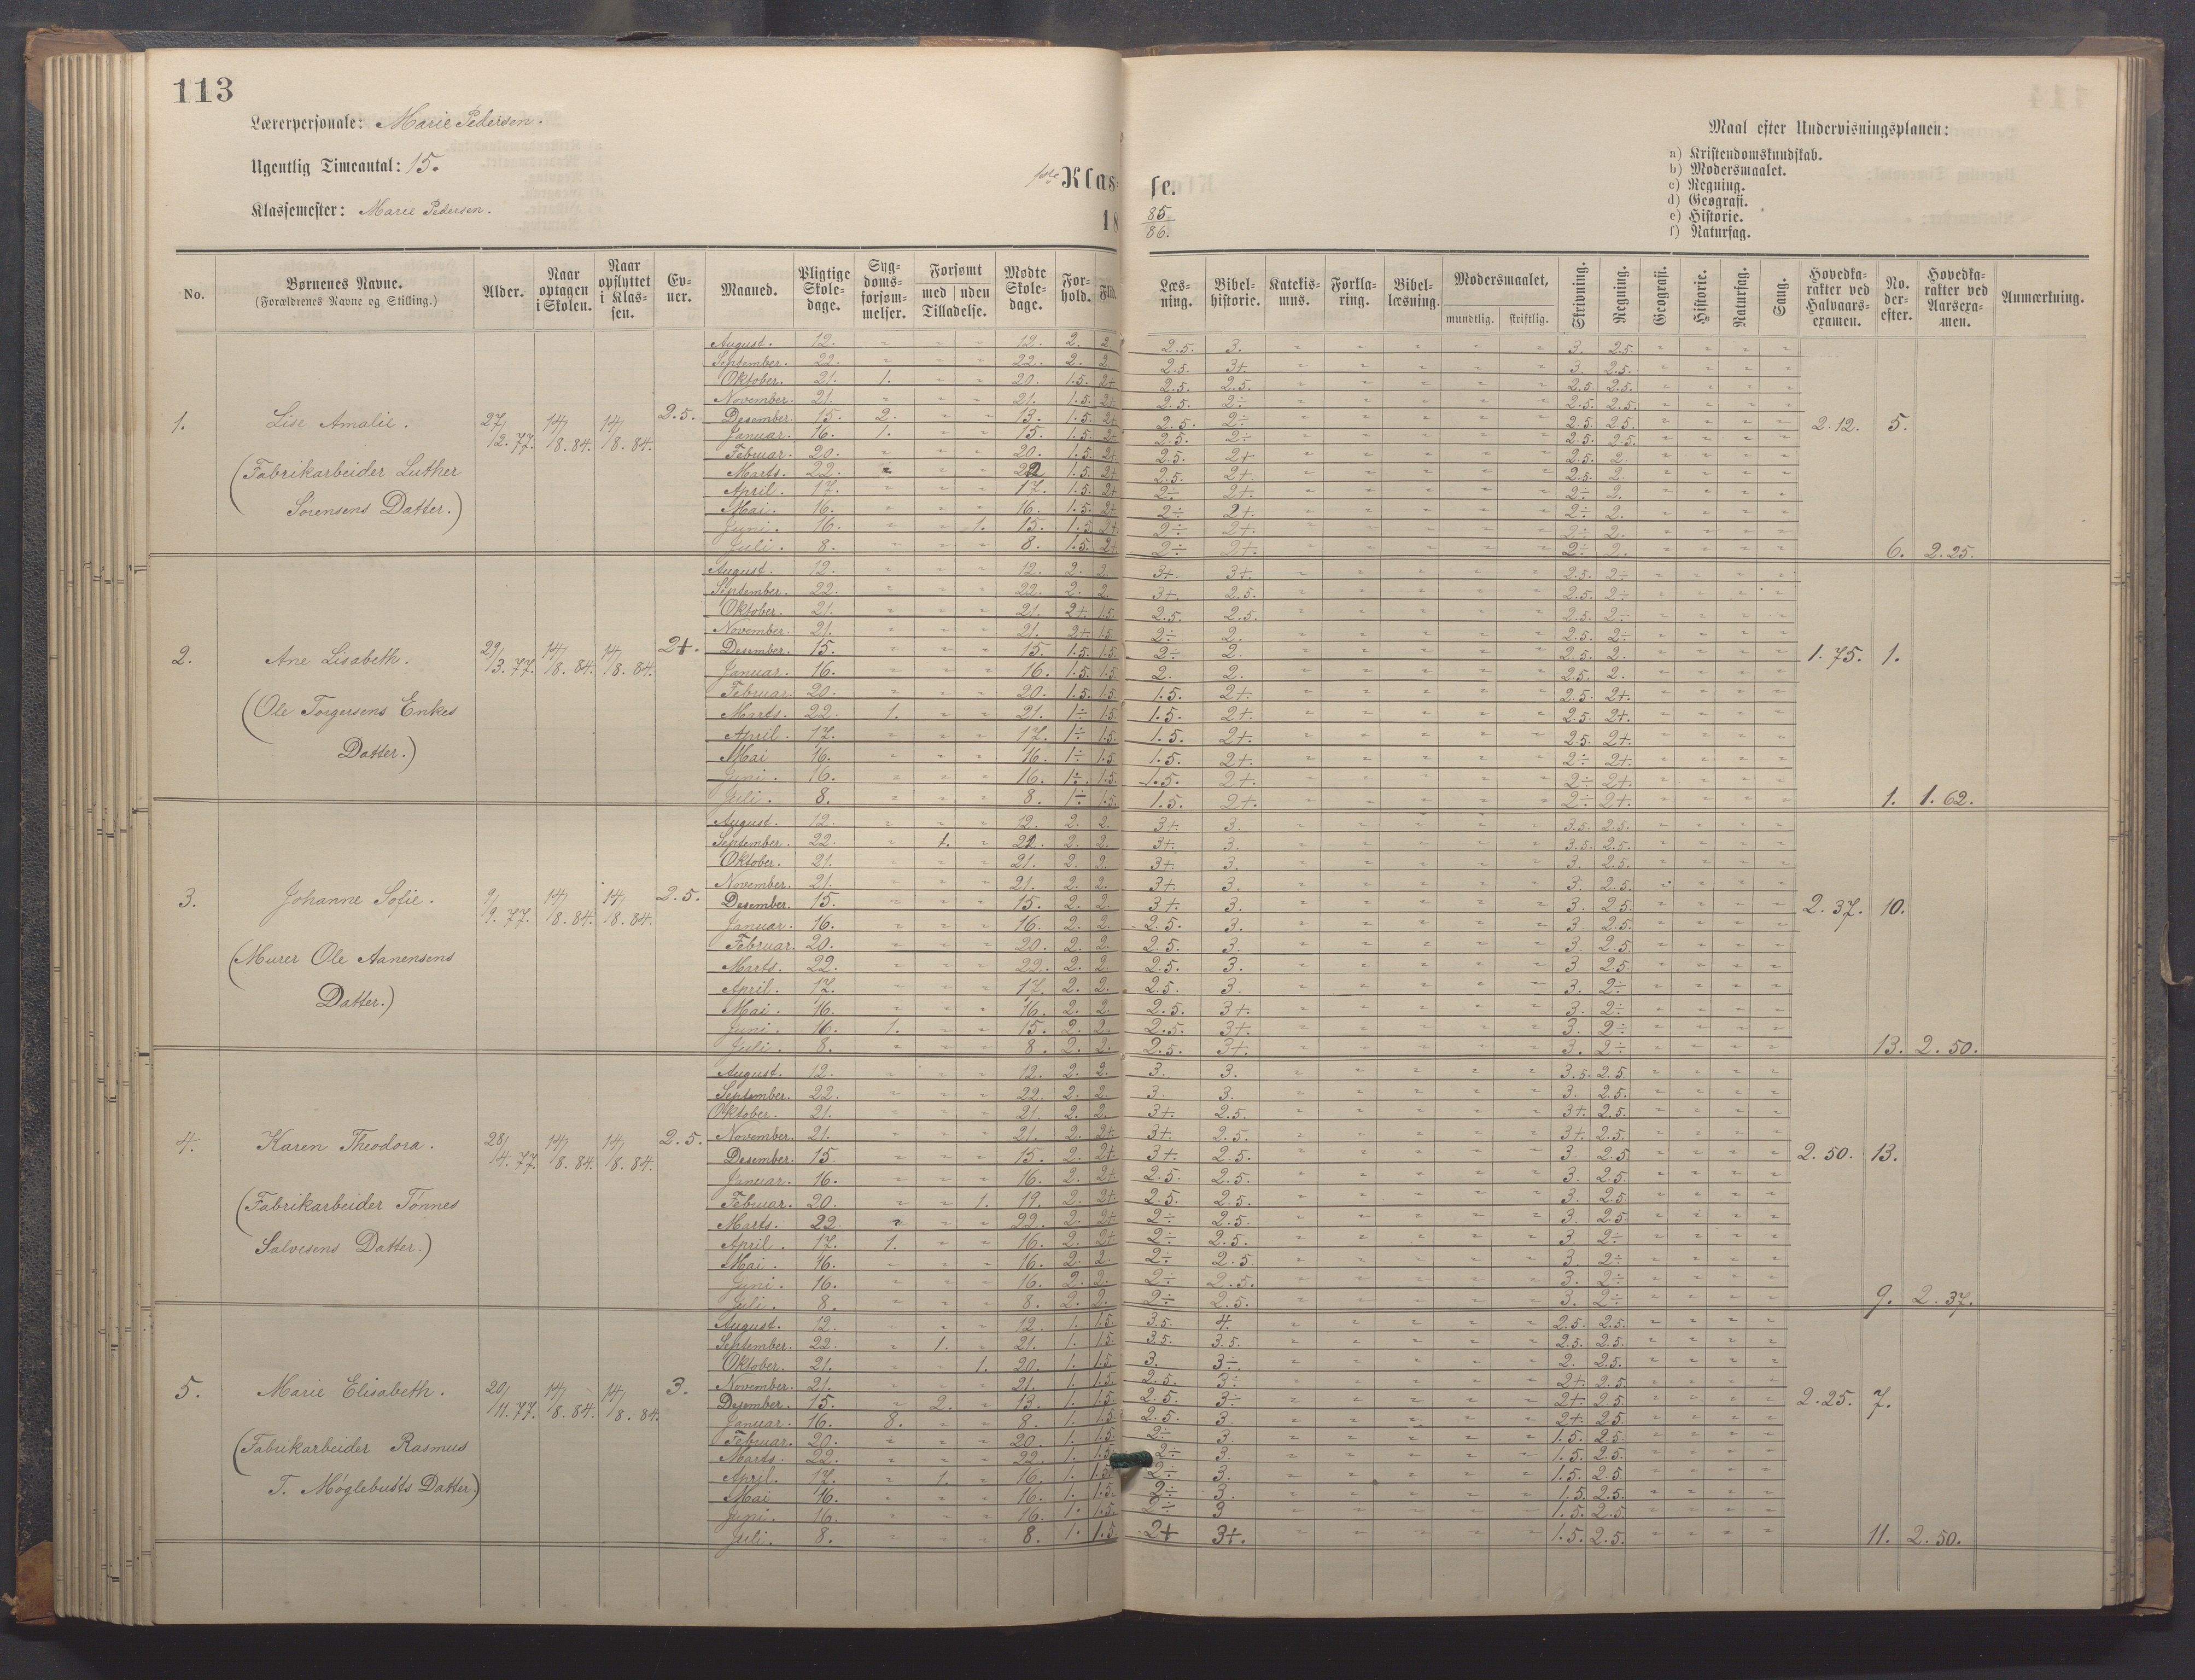 113
Lærerpersonale: Marie Pedersen.
Ugentlig Timeantal: 15.
Klassemester: Marie Pedersen.
1ste Klasse.
1885/86.
Maal efter Undervisningsplanen:
a) Kristendomskundskab.
b) Modersmaalet.
c) Regning.
d) Geografi.
e) Historie.
f) Naturfag.
No. | Børnenes Navne. (Forældrenes Navne og Stilling.) | Alder. | Naar optagen i Skolen. | Naar opflyttet i Klassen. | Evner. | Maaned. | Pligtige Skoledage. | Sygdomsforsømmelser. | Forsømt med Tilladelse. | uden Tilladelse. | Mødte Skoledage. | Forhold. | Flid. | Læsning. | Bibelhistorie. | Katekismus. | Forklaring. | Bibellæsning. | Modersmaalet, mundtlig. | skriftlig. | Skrivning. | Regning. | Geografi. | Historie. | Naturfag. | Sang. | Hovedkarakter ved Halvaarsexamen. | No. derefter. | Hovedkarakter ved Aarsexamen. | Anmærkning.
1. Lise Amalie. 27/12.77. 14/8.84. 14/8.84. 2.5. 2.12. 5.
(Fabrikarbeider Luther
Sørensens Datter.)
August. 12. " " " 12. 2. 2. 2.5. 3. " " " " " 3. 2.5. " " " "
September. 22. " " " 22. 2. 2. 2.5. 3+. " " " " " 3. 2.5. " " " "
Oktober. 21. 1. " " 20. 1.5. 2+ 2.5. 2.5. " " " " " 2.5. 2.5. " " " "
November. 21. " " " 21. 1.5. 2+ 2.5. 2÷ " " " " " 2.5. 2.5. " " " "
Desember. 15. 2. " " 13. 1.5. 2+ 2.5. 2÷ " " " " " 2.5. 2.5. " " " "
Januar. 16. 1. " " 15. 1.5. 2+ 2.5. 2÷ " " " " " 2.5. 2.5. " " " "
Februar. 20. " " " 20. 1.5. 2+ 2.5. 2+ " " " " " 2.5. 2. " " " "
Marts. 22. " " " 22 1.5. 2+ 2.5. 2+. " " " " " 2.5. 2. " " " "
April. 17. " " " 17. 1.5. 2+ 2÷ 2+. " " " " " 2÷ 2. " " " "
Mai. 16. " " " 16. 1.5. 2+ 2÷ 2+. " " " " " 2÷ 2. " " " "
Juni. 16. " " 1. 15. 1.5. 2+. 2÷ 2+. " " " " " 2÷ 2. " " " "
Juli. 8. " " " 8. 1.5. 2+. 2÷ 2+. " " " " " 2÷ 2. " " " " 6. 2.25.
2. Ane Lisabeth. 29/3.77. 14/8.84. 14/8.84. 2+. 1.75. 1.
(Ole Torgersens Enkes
Datter.)
August. 12. " " " 12. 2. 2. 3+. 3+. " " " " " 2.5. 2÷ " " " "
September. 22. " " " 22. 2. 2. 3+. 2.5. " " " " " 2.5. 2÷ " " " "
Oktober. 21. " " " 21. 2+ 1.5. 2.5. 2.5. " " " " " 2.5. 2÷ " " " "
November. 21. " " " 21. 2+. 1.5. 2÷ 2. " " " " " 2.5. 2÷ " " " "
Desember. 15. " " " 15. 1.5. 1.5. 2÷ 2. " " " " " 2.5. 2. " " " "
Januar. 16. " " " 16. 1.5. 1.5. 2. 2. " " " " " 2.5. 2. " " " "
Februar. 20. " " " 20. 1.5. 1.5. 1.5. 2+. " " " " " 2.5. 2+. " " " "
Marts. 22. 1. " " 21. 1÷ 1.5. 1.5. 2+. " " " " " 2.5. 2+. " " " "
April. 17. " " " 17. 1÷ 1.5. 1.5. 2+. " " " " " 2.5. 2+. " " " "
Mai 16. " " " 16. 1÷ 1.5. 1.5. 2+. " " " " " 2÷ 2+. " " " "
Juni. 16. " " " 16. 1÷. 1.5. 1.5. 2+. " " " " " 2÷ 2+. " " " "
Juli. 8. " " " 8. 1÷ 1.5. 1.5. 2+. " " " " " 2÷ 2+. " " " " 1. 1.62.
3. Johanne Sofie. 9/9.77. 14/8.84. 14/8.84. 2.5. 2.37. 10.
(Murer Ole Aanensens
Datter.)
August. 12. " " " 12. 2. 2. 3+. 3. " " " " " 3.5. 2.5. " " " "
September. 22. " 1. " 21. 2. 2. 3+. 3. " " " " " 3.5. 2.5. " " " "
Oktober. 21. " " " 21. 2. 2. 3+. 3. " " " " " 3. 2.5. " " " "
November. 21. " " " 21. 2. 2. 3+. 3. " " " " " 3. 2.5. " " " "
Desember. 15. " " " 15. 2. 2. 3+. 3. " " " " " 3. 2.5. " " " "
Januar. 16. " " " 16. 2. 2. 2.5. 3. " " " " " 3. 2.5. " " " "
Februar. 20. " " " 20. 2. 2. 2.5. 3. " " " " " 3. 2.5. " " " "
Marts. 22. " " " 22. 2. 2. 2.5. 3. " " " " " 3. 2.5. " " " "
April. 17. " " " 17. 2. 2. 2.5. 3. " " " " " 3. 2÷ " " " "
Mai. 16. " " " 16. 2. 2. 2.5. 3+. " " " " " 3. 2÷ " " " "
Juni. 16. 1. " " 15. 2. 2. 2.5. 3+. " " " " " 3. 2÷ " " " "
Juli. 8. " " " 8. 2. 2. 2.5. 3+. " " " " " 3. 2÷ " " " " 13. 2.50.
4. Karen Theodora. 28/4.77. 14/8.84. 14/8.84. 2.5. 2.50. 13.
(Fabrikarbeider Tønnes
Salvesens Datter.)
August. 12. " " " 12. 2. 2. 3. 3. " " " " " 3.5. 2.5. " " " "
September. 22. " " " 22. 2. 2. 3. 3. " " " " " 3. 2.5. " " " "
Oktober. 21. " " " 21. 2. 2. 3+. 2.5. " " " " " 3+. 2.5. " " " "
November. 21. " " " 21. 2. 2+ 3+. 2.5. " " " " " 3+. 2.5. " " " "
Desember. 15. " " " 15. 2. 2+ 3+. 2.5. " " " " " 3. 2.5. " " " "
Januar. 16. " " " 16. 2. 2+ 2.5. 2.5. " " " " " 3. 2.5. " " " "
Februar. 20. " " 1. 19. 2. 2+ 2.5. 2.5. " " " " " 3. 2.5. " " " "
Marts. 22 " " " 22. 2. 2+ 2÷ 2.5. " " " " " 3. 2.5. " " " "
April. 17. 1. " " 16. 2. 2+ 2÷ 2.5. " " " " " 3. 2÷ " " " "
Mai. 16. " " " 16. 2. 2. 2÷ 2.5. " " " " " 3. 2÷ " " " "
Juni. 16. " " " 16. 2. 2. 2÷ 2.5. " " " " " 3. 2÷ " " " "
Juli. 8. " " " 8. 2. 2. 2÷ 2.5. " " " " " 3. 2÷ " " " " 9. 2.37.
5. Marie Elisabeth. 20/11.77. 14/8.84. 14/8.84. 3. 2.25. 7.
(Fabrikarbeider Rasmus
T. Møglebusts Datter.)
August. 12. " " " 12. 1. 1.5. 3.5. 4. " " " " " 2.5. 2.5. " " " "
September. 22. " 1. " 21. 1. 1.5. 3.5. 3.5. " " " " " 2.5. 2.5. " " " "
Oktober. 21. " " 1. 20. 1. 1.5. 3. 3÷ " " " " " 2. 2.5. " " " "
November. 21. " " " 21. 1. 1.5. 2.5. 3÷ " " " " " 2+. 2.5. " " " "
Desember. 15. " 2. " 13. 1. 1.5. 2.5. 3÷ " " " " " 2+. 2.5. " " " "
Januar. 16. 8. " " 8. 1. 1.5. 2.5. 3. " " " " " 2+. 2.5. " " " "
Februar. 20. " " " 20. 1. 1.5. 2÷ 3. " " " " " 1.5. 2.5. " " " "
Marts. 22. " " " 22. 1. 1.5. 2÷ 3. " " " " " 1.5. 2.5. " " " "
April. 17. " 1. " 16. 1. 1.5. 2÷ 3. " " " " " 1.5. 2.5. " " " "
Mai 16. " " " 16. 1. 1.5. 2÷ 3. " " " " " 1.5. 2.5. " " " "
Juni. 16. " " " 16. 1. 1.5. 2÷ 3 " " " " " 1.5. 2.5. " " " "
Juli. 8. " " " 8. 1. 1.5. 2+ 3+. " " " " " 1.5. 2.5. " " " " 11. 2.50.